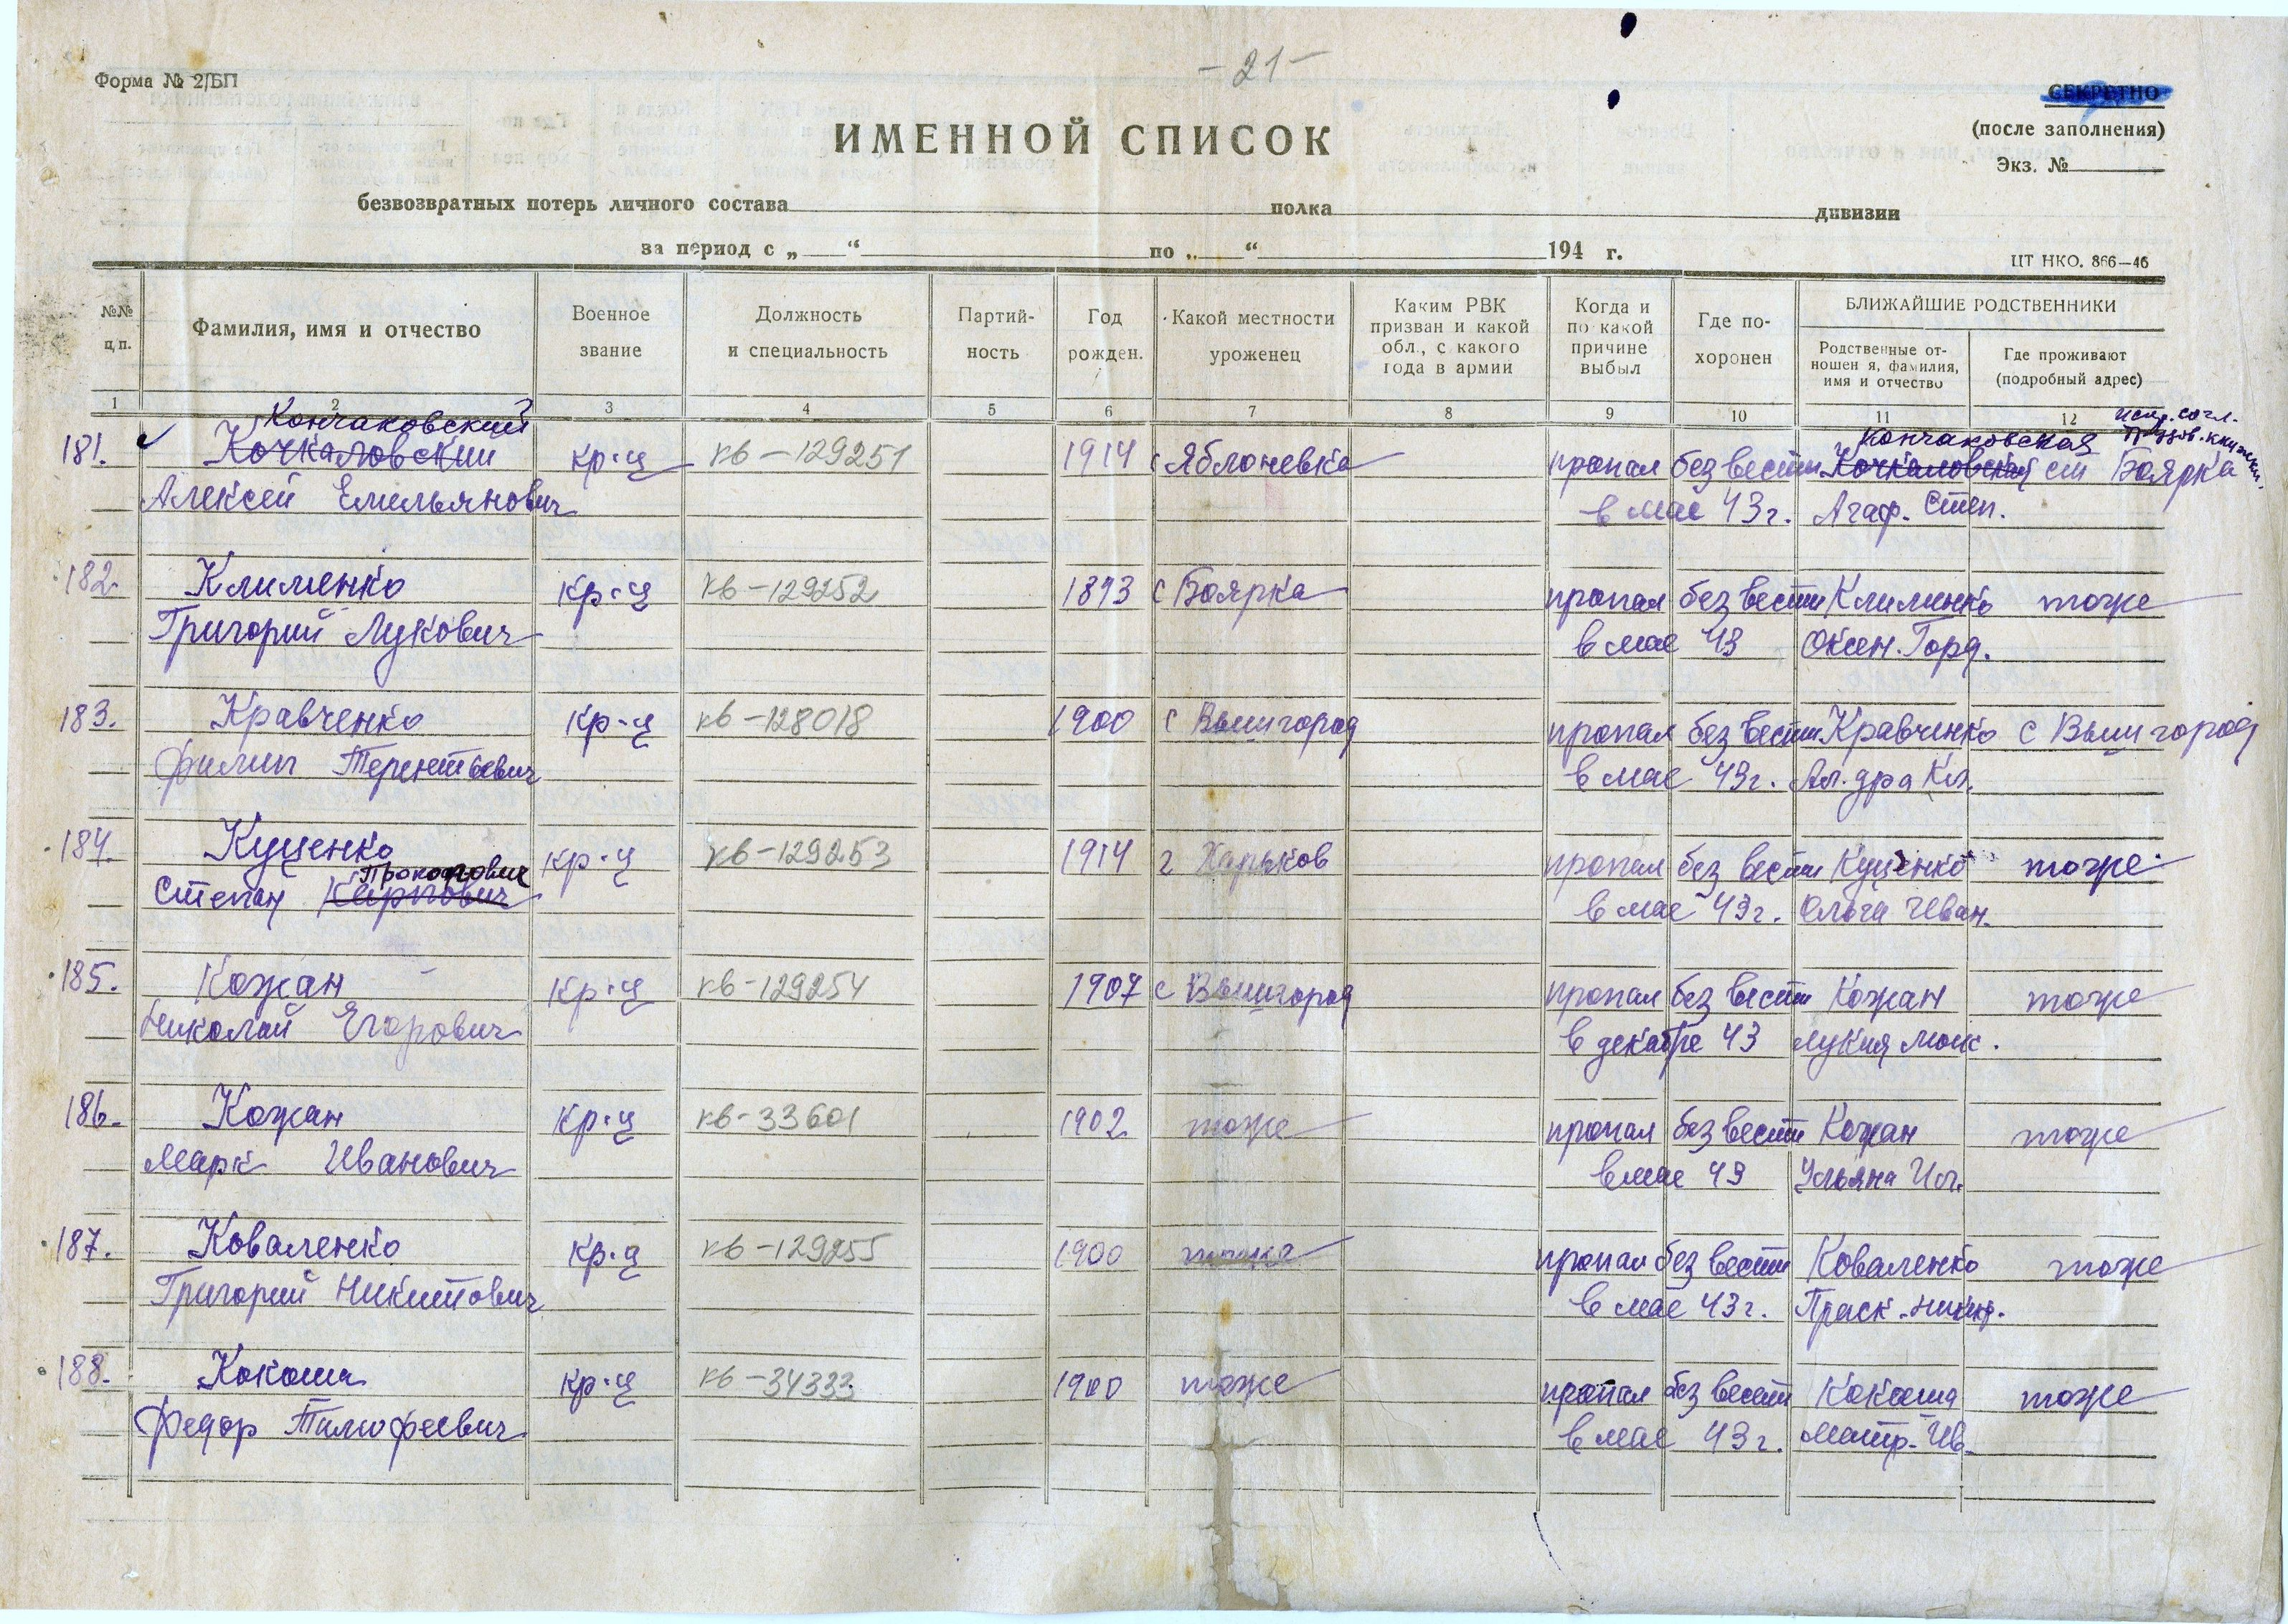 - 21 -
Форма № 2/БП
СЕКРЕТНО
(после заполнения)
Экз. №
ИМЕННОЙ СПИСОК
безвозвратных потерь личного состава полка дивизии
за период с „ “ по „ “ 194 г.
ЦТ НКО. 866—46
№№ ц/п.
Фамилия, имя и отчество
Военное звание
Должность и специальность
Партий-ность
Год рожден.
Какой местности уроженец
Каким РВК призван и какой обл., с какого года в армии
Когда и по какой причине выбыл
Где по-хоронен
БЛИЖАЙШИЕ РОДСТВЕННИКИ
Родственные от-ношен я, фамилия, имя и отчество
Где проживают (подробный адрес)
1 2 3 4 5 6 7 8 9 10 11 12
Кончаковский Кончаковская испр. согл.
181. Кочкаловский кр-ц кв-129251 1914 с Яблоневка пропал без вести Кочкаловская ст Боярка
Алексей Емельянович в мае 43 г. Агаф. Степ.
182. Клименко кр-ц кв-129252 1893 с Боярка пропал без вести Клименко тоже
Григорий Лукович в мае 43 Оксен. Горд.
183. Кравченко кр-ц кв-128018 1900 с Вышгород пропал без вести Кравченко с Вышгород
Филип Терентьевич в мае 43 г. Ал.дра Кл.
184. Куценко кр-ц кв-129253 1914 г Харьков пропал без вести Куценко тоже
Прокопович
Степан Карпович в мае 43 г. Ольга Иван.
185. Кожан кр-ц кв-129254 1907 с Вышгород пропал без вести Кожан тоже
Николай Егорович в декабре 43 Лукия
186. Кожан кр-ц кв-33601 1902 тоже пропал без вести Кожан тоже
Марк Иванович в мае 43 Ульяна
187. Коваленко кр-ц кв-129255 1900 тоже пропал без вести Коваленко тоже
Григорий Никитович в мае 43 г. Праск.
188. Кокоша кр-ц кв-34333 1900 тоже пропал без вести Кокоша тоже
Федор Тимофеевич в мае 43 г. Матр. Ив.